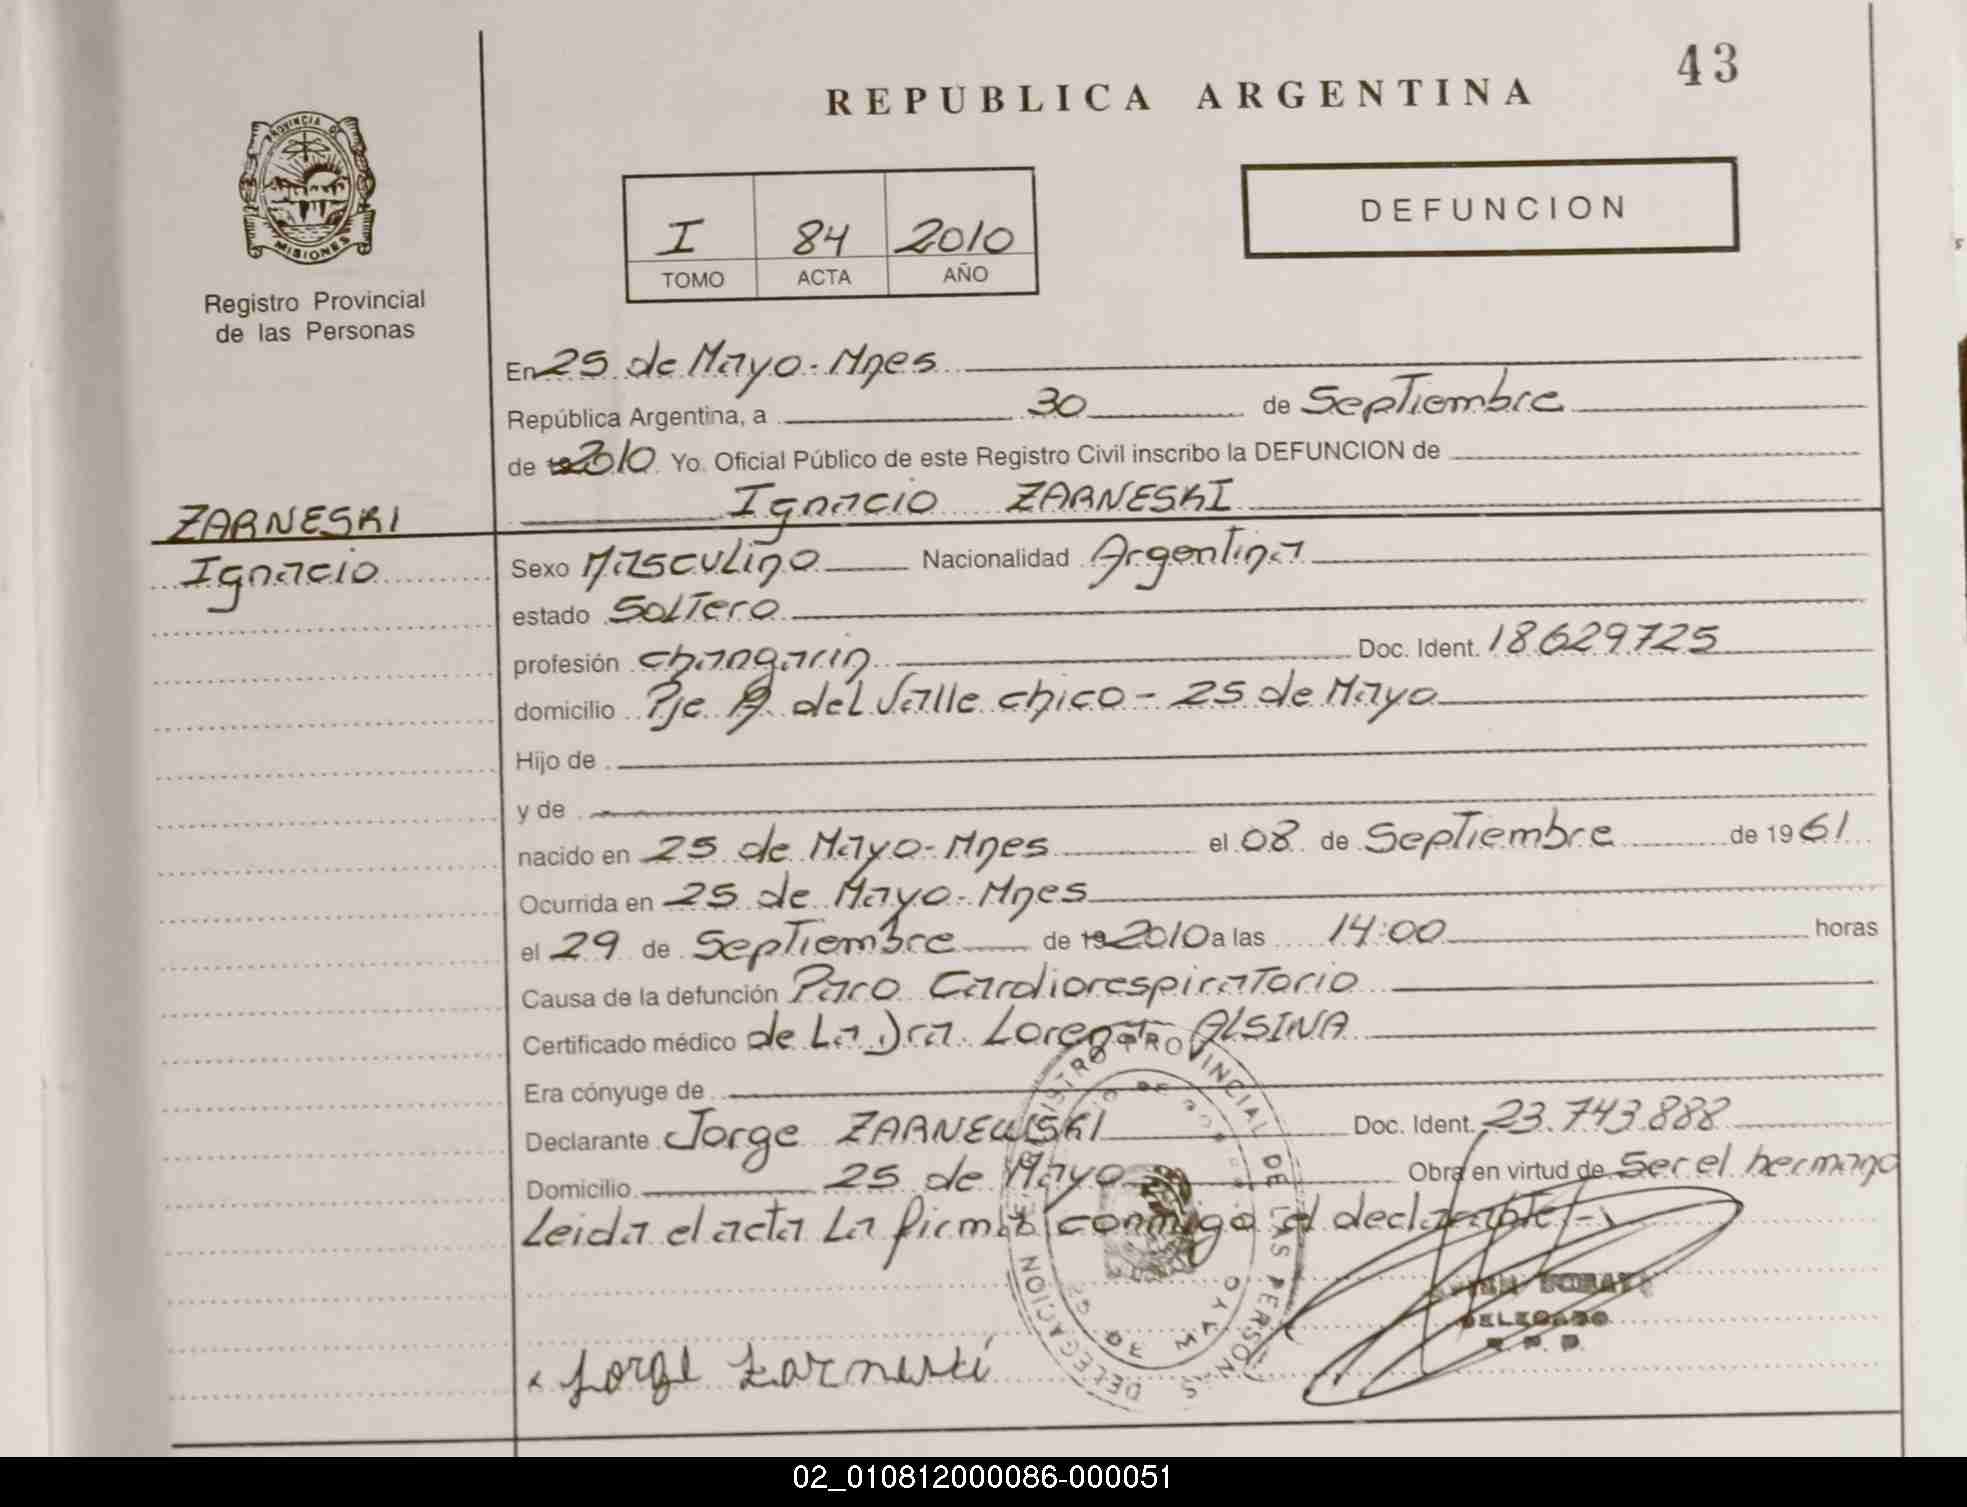 43
REPUBLICA ARGENTINA
PROVINCIA DE
MISIONES
Registro Provincial
de las Personas
I 84 2010
TOMO ACTA AÑO
DEFUNCION
En 25 de Mayo - Mnes
República Argentina, a 30 de Septiembre
de 19 2010 Yo. Oficial Público de este Registro Civil inscribo la DEFUNCION de
Ignacio ZARNESKI
ZARNESKI
Ignacio
Sexo Masculino Nacionalidad Argentina
estado Soltero
profesión changarin Doc. Ident. 18629725
domicilio Pje A. del Valle chico - 25 de Mayo
Hijo de
y de
nacido en 25 de Mayo - Mnes el 08 de Septiembre de 1961
Ocurrida en 25 de Mayo - Mnes
el 29 de Septiembre de 19 2010 a las 14:00 horas
Causa de la defunción Paro Cardiorespiratorio
Certificado médico de La Dra. Lorena ALSINA
Era cónyuge de
Declarante Jorge ZARNEWSKI Doc. Ident. 23.743.888
Domicilio 25 de Mayo Obra en virtud de Ser el hermano
Leida el acta La firma conmigo el declarante.-
REGISTRO PROVINCIAL DE LAS PERSONAS
DELEGACION
25 DE MAYO
DELEGADO
x Jorge Zarneski
02_010812000086-000051